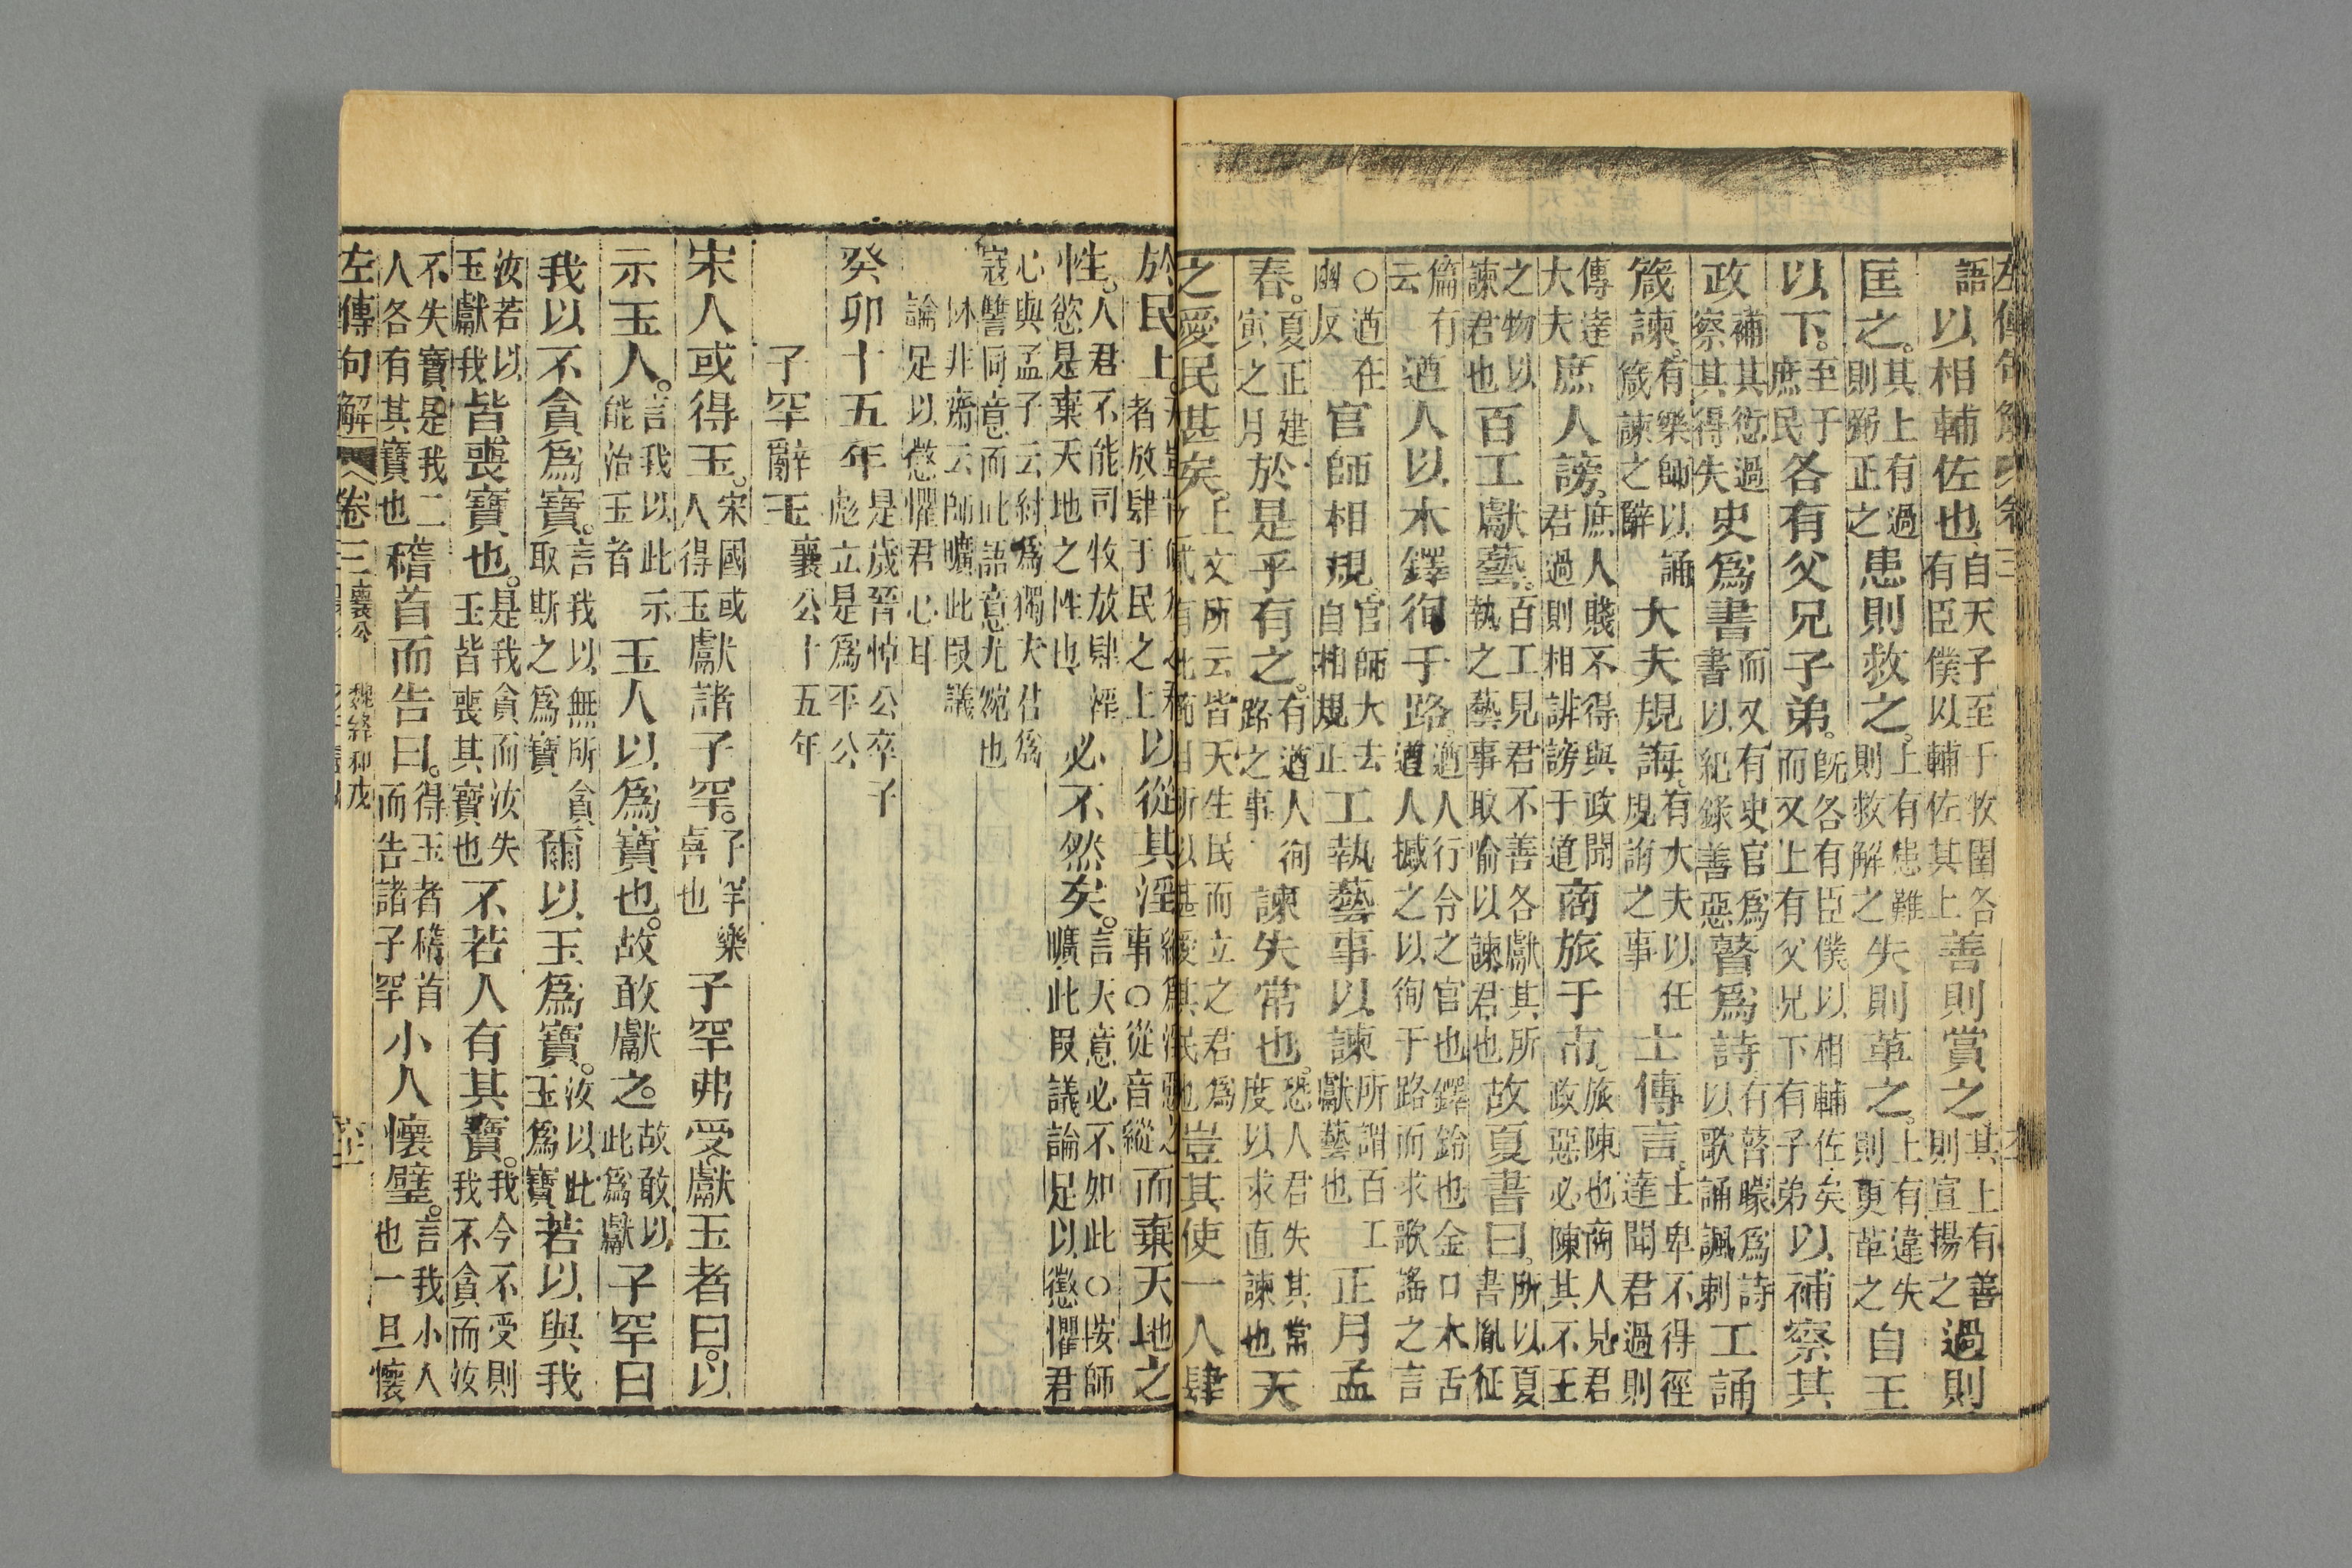 左傳句解 卷三
語以相輔佐也自天子至于牧圉各有臣僕以輔佐其上善則賞之其上有善則宣揚之過則
匡之。其上有過則弼正之患則救之。上有患難則救解之失則革之。上有違失則更革之自王
以下。至于庶民各有父兄子弟。既各有臣僕以相輔佐矣而又上有父兄下有子弟以補察其
政補其愆過察其得失史爲書而又有史官爲書以紀錄善惡瞽爲詩有瞽矇爲詩以歌誦諷刺工誦
箴諫。有樂師以誦箴諫之辭大夫規誨有大夫以任規誨之事士傳言。士卑不得徑達聞君過則
傳達大夫庶人謗。庶人賤不得與政聞君過則相誹謗于道商旅于市。旅陳也商人見君政惡必陳其不王
之物以諫君也百工獻藝。百工見君不善各獻其所執之藝事取喻以諫君也故夏書曰。所以夏書胤征
篇有云遒人以木鐸徇于路。遒人行令之官也鐸鈴也金口木舌遒人撼之以徇于路而求歌謠之言
○遒在幽反官師相規。官師大夫自相規正工執藝事以諫所謂百工獻藝也正月孟
春。夏正建寅之月於是乎有之。有遒人徇路之事諫失常也。恐人君失其常度以求直諫也天
之愛民甚矣。上文所云皆天生民而立之君爲之貳有此所以甚愛其民也豈其使一人肆
於民上。者放肆于民之上以從其淫縱爲淫惡之事○從音縱而棄天地之
性。人君不能司牧放肆淫慾是棄天地之性也必不然矣。言天意必不如此○按師曠此段議論足以懲懼君
心與孟子云紂爲獨夫君爲寇讐同意而此語意尤婉也
林非齋云師曠此段議論足以懲懼君心耳
癸卯十五年是歲晉悼公卒子彪立是爲平公
子罕辭玉襄公十五年
宋人或得玉。宋國或人得玉獻諸子罕。子罕樂喜也子罕弗受。獻玉者曰。以
示玉人。言我以此示能治玉首玉人以爲寶也。故敢獻之。故敢以此爲獻子罕曰
我以不貪爲寶。言我以無所貪取斯之爲寶爾以玉爲寶。汝以此玉爲寶若以與我
汝若以玉獻我皆喪寶也。是我貪而汝失玉皆喪其寶也不若人有其寶。我今不受則我不貪而汝
不失寶是我二人各有其寶也稽首而告曰。得玉者稽首而告諸子罕小人懷璧。言我小人也一旦懷
左傳句解 卷三 襄公 魏絳和戎